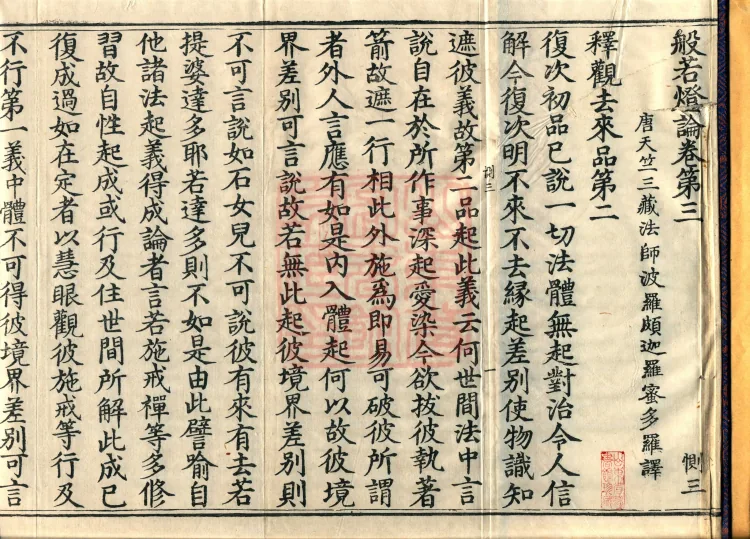 般若燈論卷第三 惻三
唐天竺三藏法師波羅頗迦羅蜜多羅譯
釋觀去來品第二
復次初品已說一切法體無起對治令人信
解今復次明不來不去緣起差別使物識知
遮彼義故第二品起此義云何世間法中言
說自在於所作事深起愛染今欲拔彼執著
箭故遮一行相此外施為即易可破彼所謂
者外人言應有如是內入體起何以故彼境
界差別可言說故若無此起彼境界差別則
不可言說如石女兒不可說彼有來有去若
提婆達多耶若達多則不如是由此譬喻自
他諸法起義得成論者言若施戒禪等多修
習故自性起成或行及住世間所解此成已
復成過如在定者以慧眼觀彼施戒等行及
不行第一義中體不可得彼境界差別可言